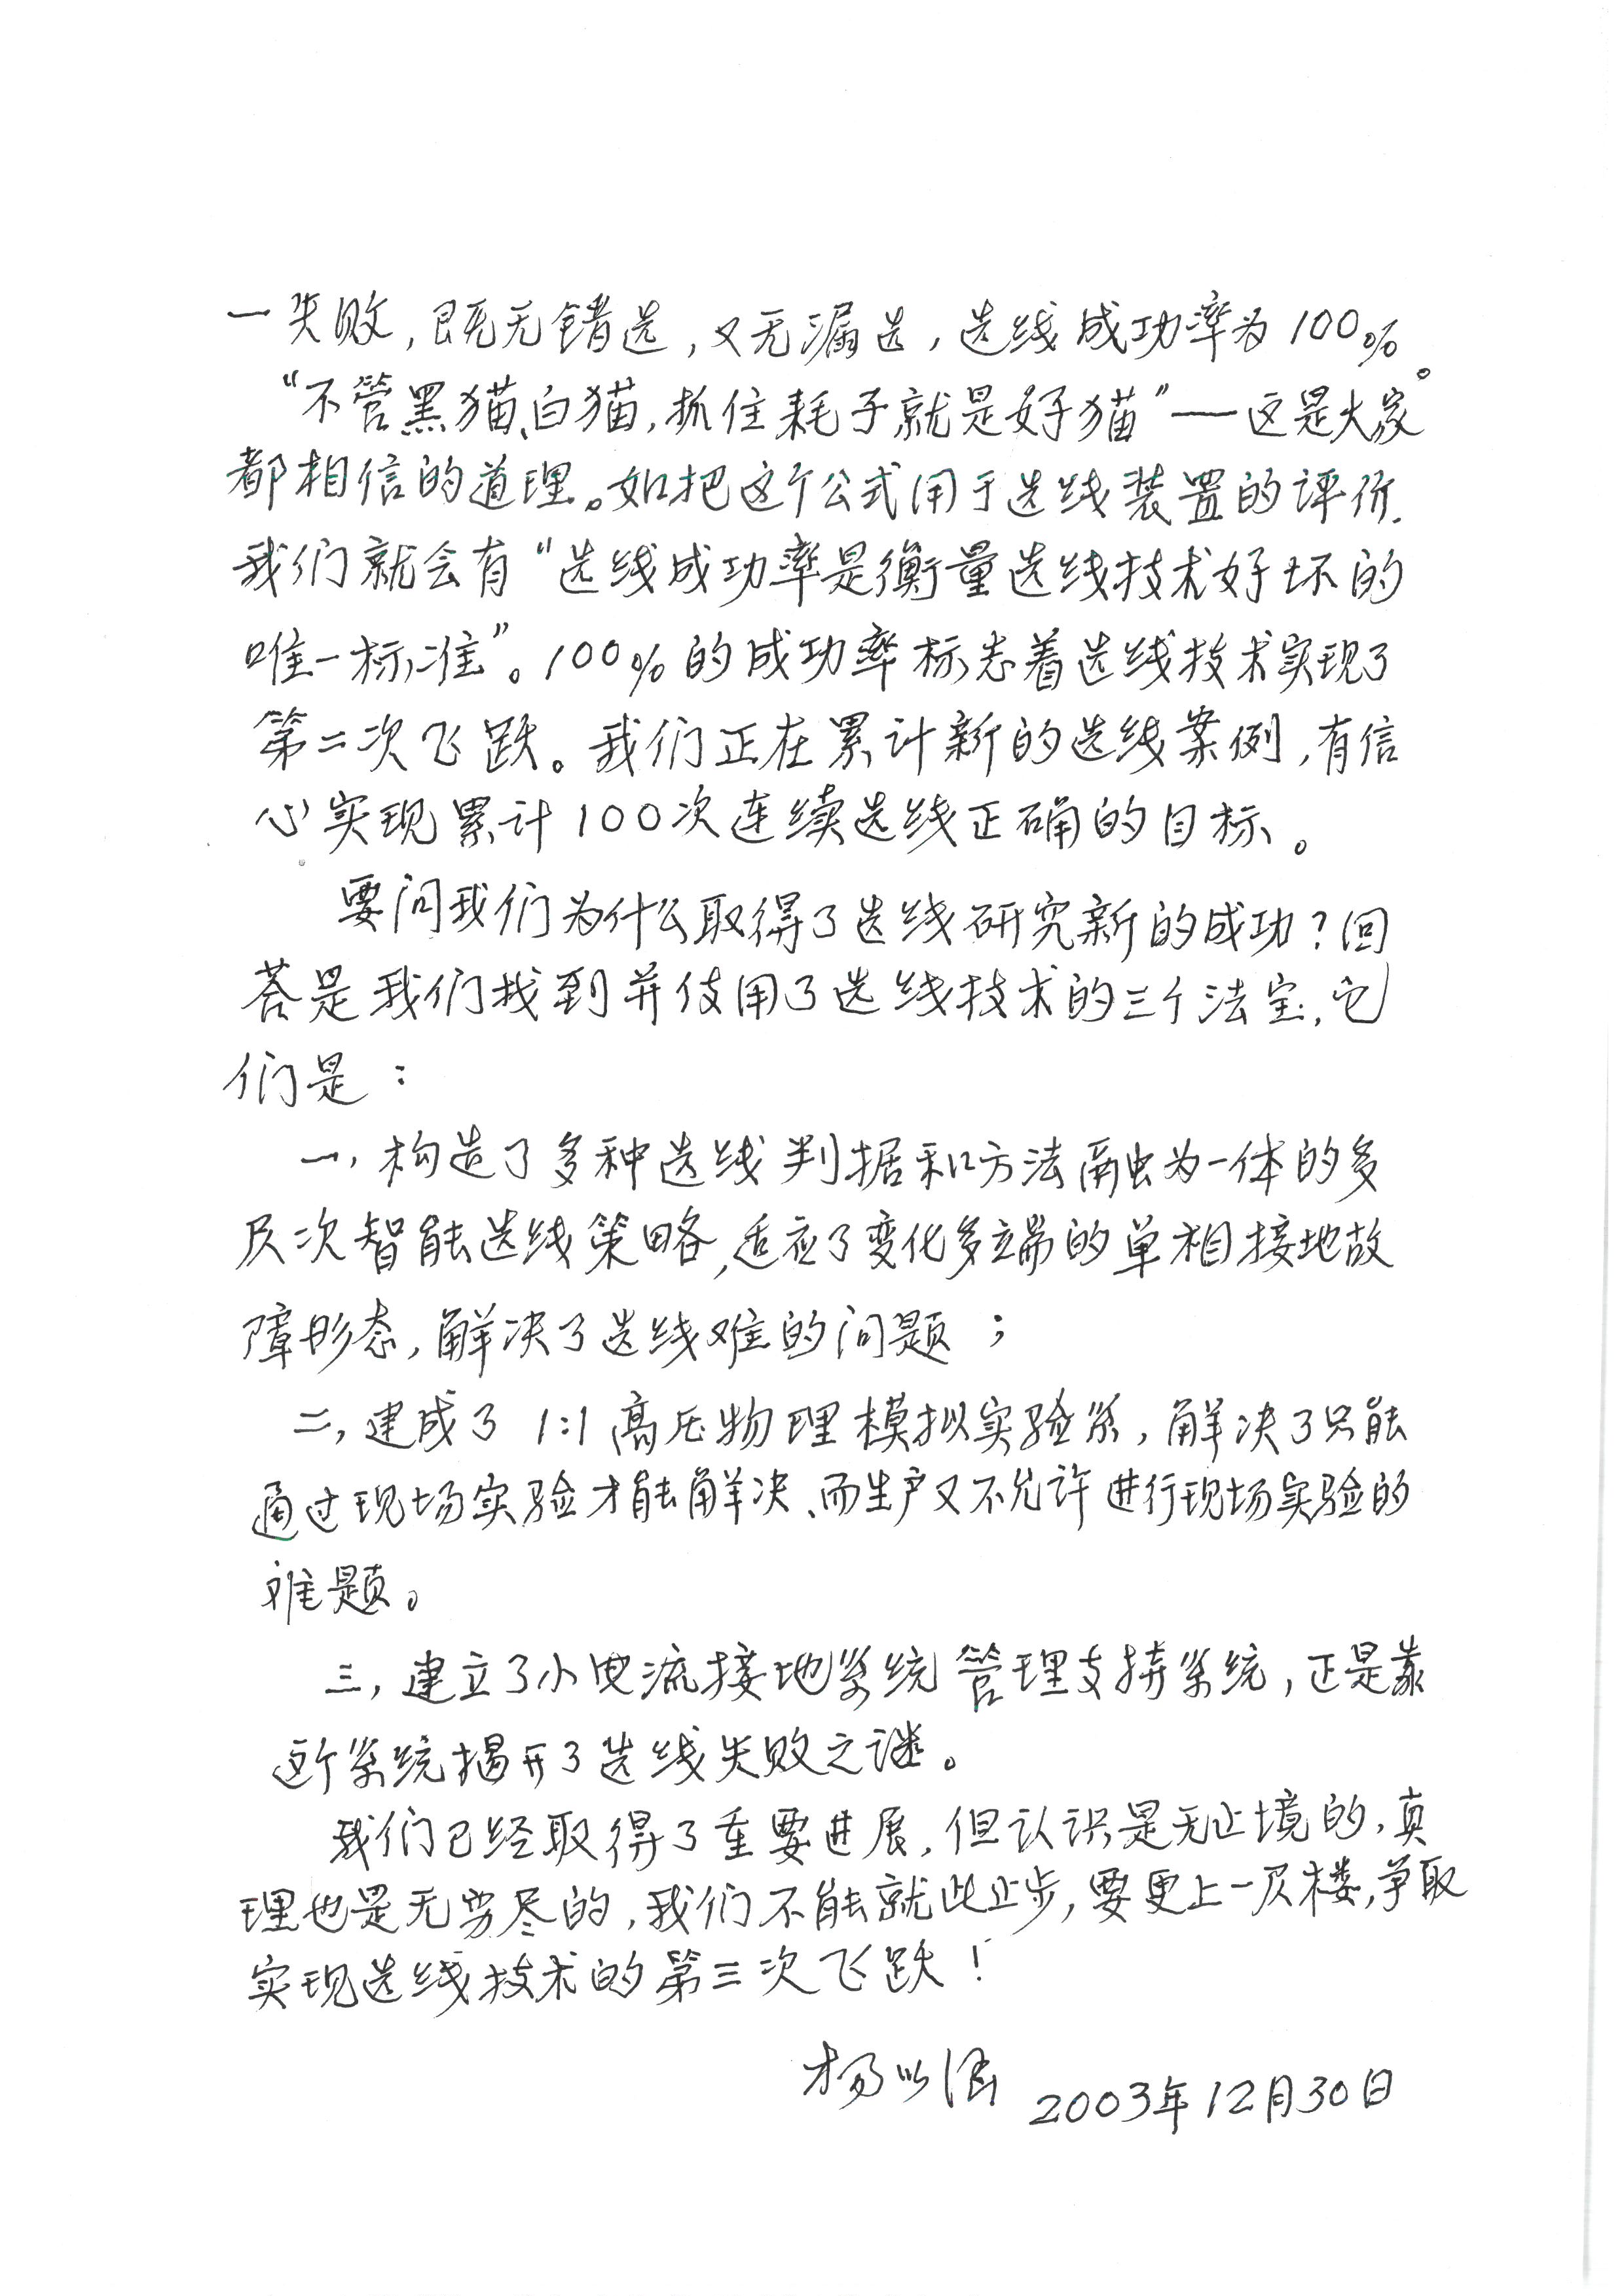 一失败,既无错选,又无漏选,选线成功率为100%。
“不管黑猫、白猫,抓住耗子就是好猫”——这是大家
都相信的道理。如把这个公式用于选线装置的评价.
我们就会有“选线成功率是衡量选线技术好坏的
唯一标准”。100%的成功率标志着选线技术实现了
第二次飞跃。我们正在累计新的选线案例,有信
心实现累计100次连续选线正确的目标。
要问我们为什么取得了选线研究新的成功?回
答是我们找到并使用了选线技术的三个法宝,它
们是:
一,构造了多种选线判据和方法融为一体的多
层次智能选线策略,适应了变化多端的单相接地故
障形态,解决了选线难的问题;
二,建成了1:1高压物理模拟实验系,解决了只能
通过现场实验才能解决、而生产又不允许进行现场实验的
难题。
三,建立了小电流接地系统管理支持系统,正是靠
这个系统揭开了选线失败之谜。
我们已经取得了重要进展,但认识是无止境的,真
理也是无穷尽的,我们不能就此止步,要更上一层楼,争取
实现选线技术的第三次飞跃!
杨以涵 2003年12月30日